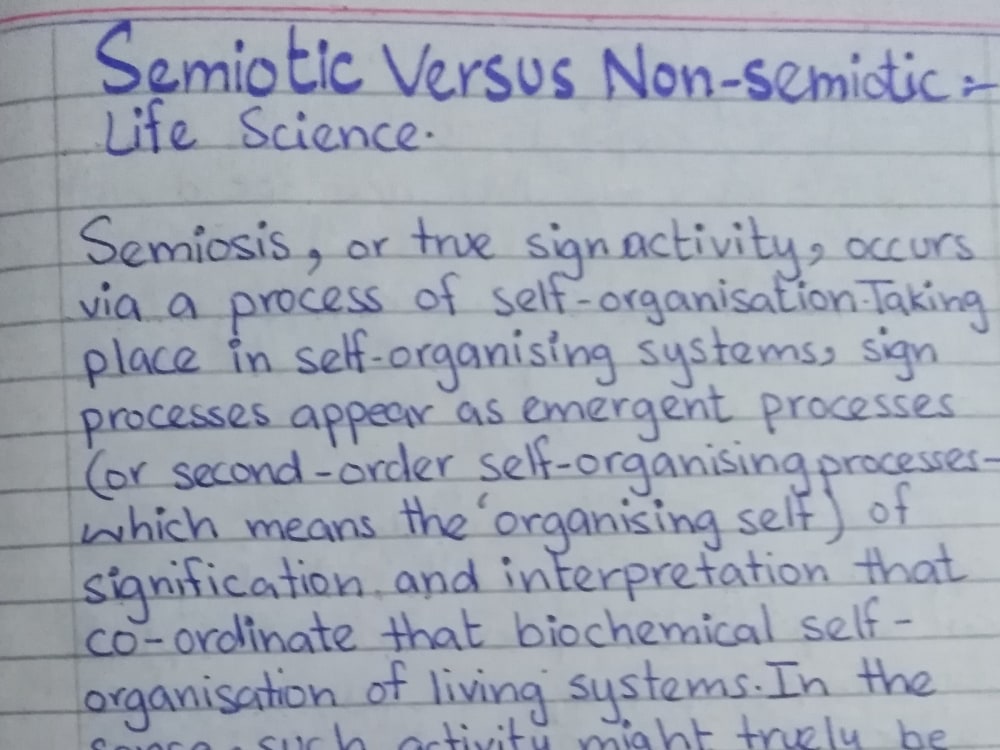 Semiotic Versus Non-semiotic :-
Life Science.
Semiosis, or true sign activity, occurs
via a process of self-organisation. Taking
place in self-organising systems, sign
processes appear as emergent processes
(or second-order self-organising processes-
which means the 'organising self) of
signification and interpretation that
co-ordinate that biochemical self-
organisation of living systems. In the
such activity might truely be